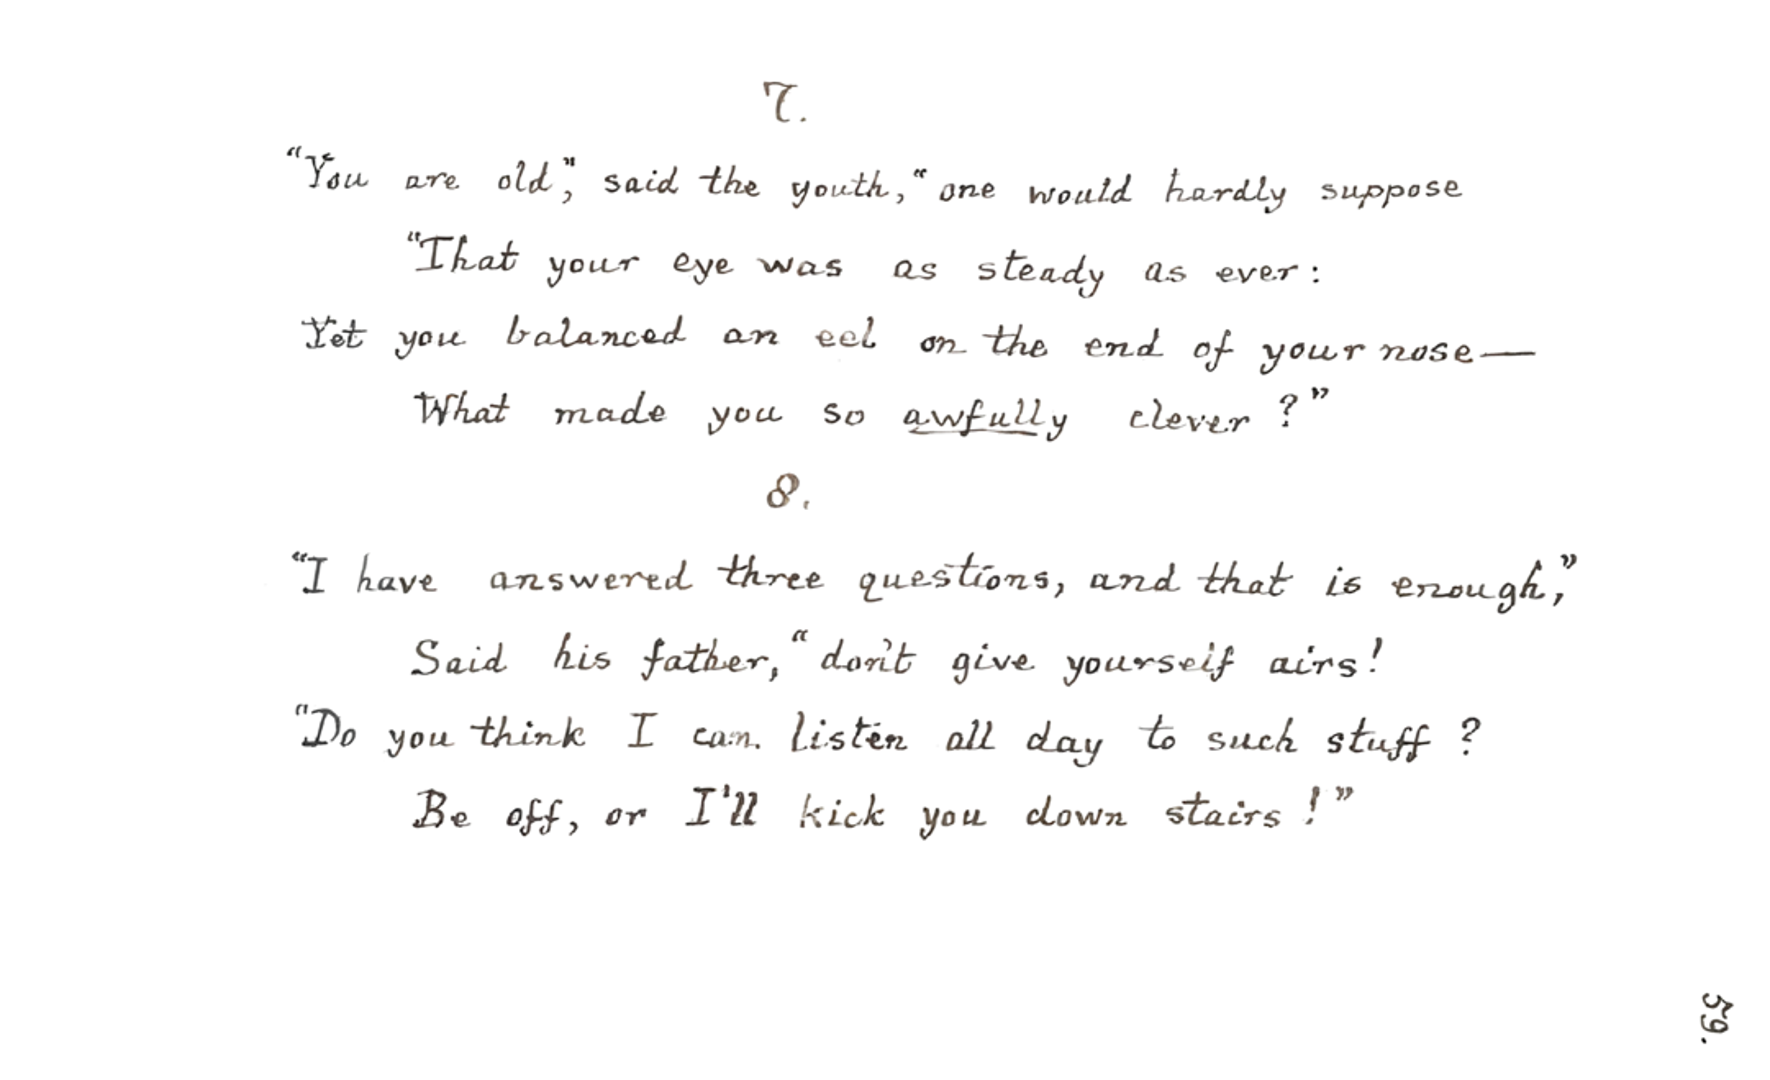 7.
"You are old", said the youth, "one would hardly suppose
"That your eye was as steady as ever:
Yet you balanced an eel on the end of your nose—
What made you so awfully clever?"
8.
"I have answered three questions, and that is enough,"
Said his father, "don't give yourself airs!
"Do you think I can listen all day to such stuff?
Be off, or I'll kick you down stairs!"
59.